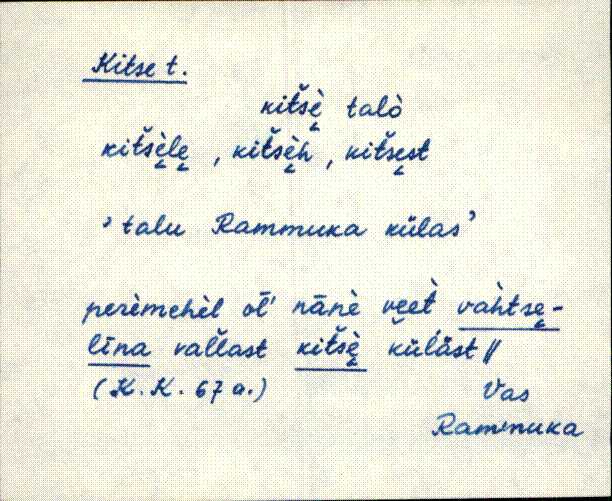 Kitse t.
kitšè̬ talò
kitšè̬le̬ , kitšè̬h , kitše̬st
' talu Rammuka külas '
perèmehèl ōĺ nānè ve̬e̬t̀ vàhtse̬-
līna vaĺlast kitšè̬ küĺäst //
(K. K. 67 a.) Vas
Rammuka